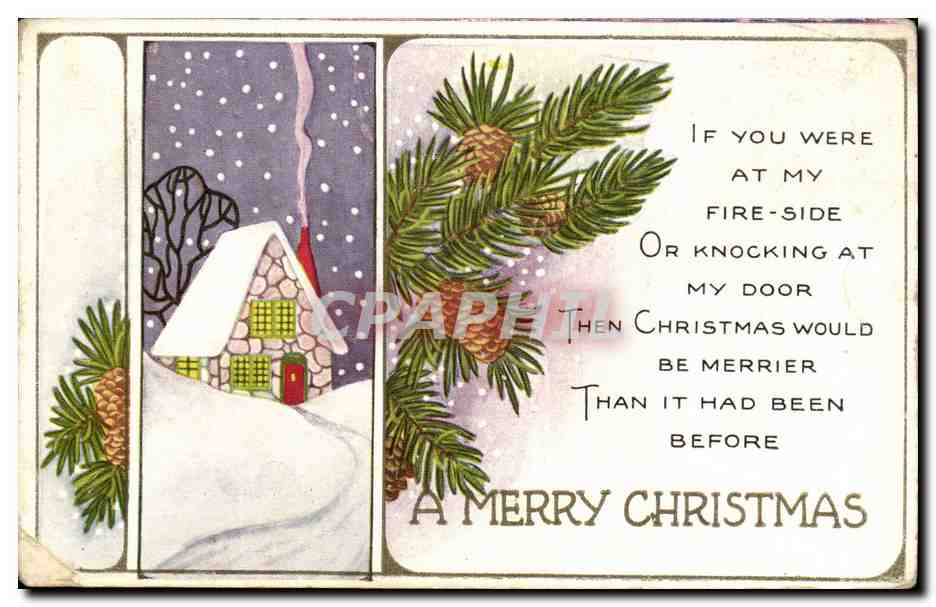 IF YOU WERE
AT MY
FIRE-SIDE
OR KNOCKING AT
MY DOOR
THEN CHRISTMAS WOULD
BE MERRIER
THAN IT HAD BEEN
BEFORE
A MERRY CHRISTMAS
CPAPHIL